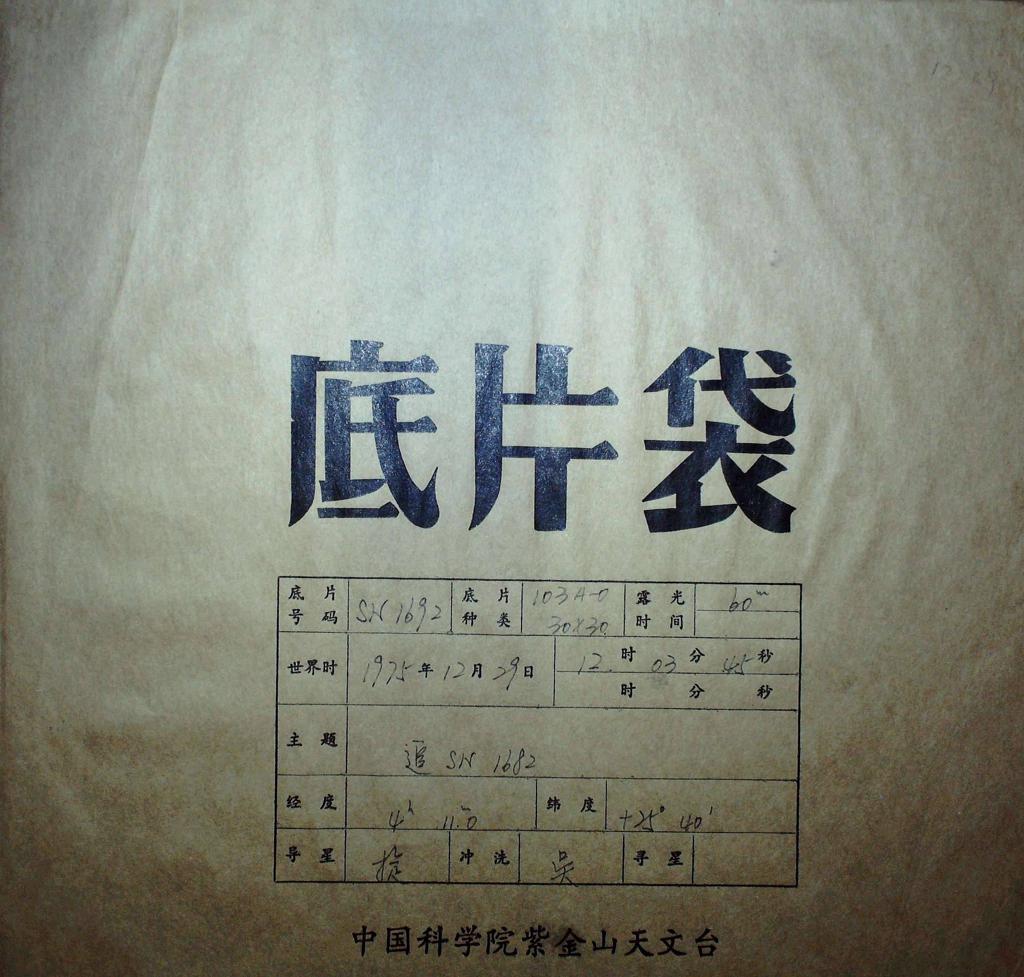 底片袋
底片号码 SN 1692 底片种类 103A-0 30×30 露光时间 60m
世界时 1975年12月29日 12时03分45秒
时 分 秒
主题 追 SN 1682
经度 4h 11m.0 纬度 +25° 40′
导星 冲洗 吴 寻星
中国科学院紫金山天文台